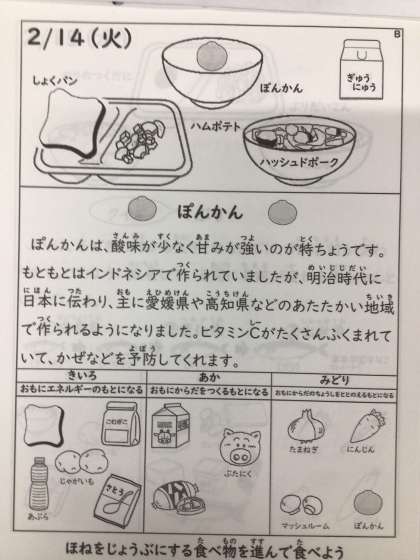 2/14(火)
B
ぎゅう
にゅう
ぽんかん
しょくパン
ハムポテト
ハッシュドポーク
ぽんかん
ぽんかんは、酸味が少なく甘みが強いのが特ちょうです。
もともとはインドネシアで作られていましたが、明治時代に
日本に伝わり、主に愛媛県や高知県などのあたたかい地域
で作られるようになりました。ビタミンCがたくさんふくまれて
いて、かぜなどを予防してくれます。
きいろ
あか
みどり
おもにエネルギーのもとになる
おもにからだをつくるもとになる
おもにからだのちょうしをととのえるもとになる
こむぎこ
じゃがいも
あぶら
さとう
ぶたにく
たまねぎ
にんじん
マッシュルーム
ぽんかん
ほねをじょうぶにする食べ物を進んで食べよう